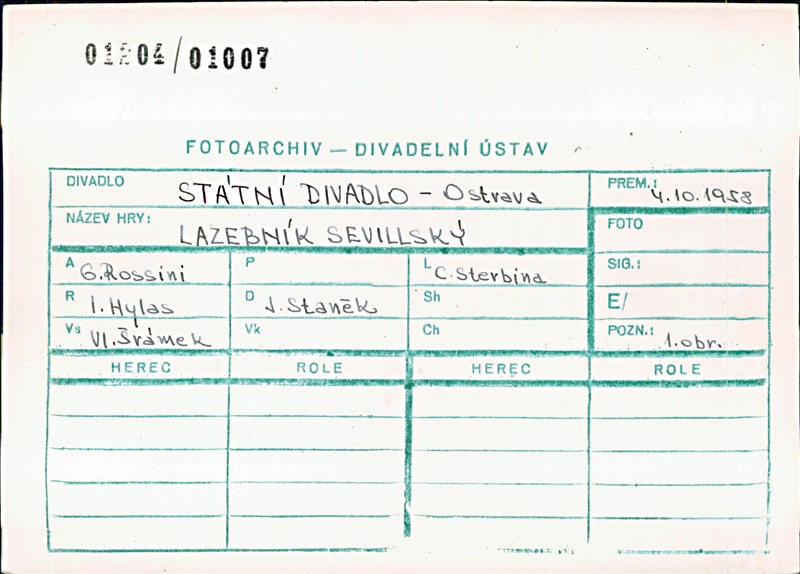 01204/01007
FOTOARCHIV — DIVADELNÍ ÚSTAV
DIVADLO STÁTNÍ DIVADLO - Ostrava PREM.: 4.10.1958
NÁZEV HRY: LAZEBNÍK SEVILLSKÝ FOTO
A G.Rossini P L C.Sterbina SIG.:
R I.Hylas D J.Staněk Sh E/
Vs Vl.Šrámek Vk Ch POZN.: 1.obr.
HEREC ROLE HEREC ROLE